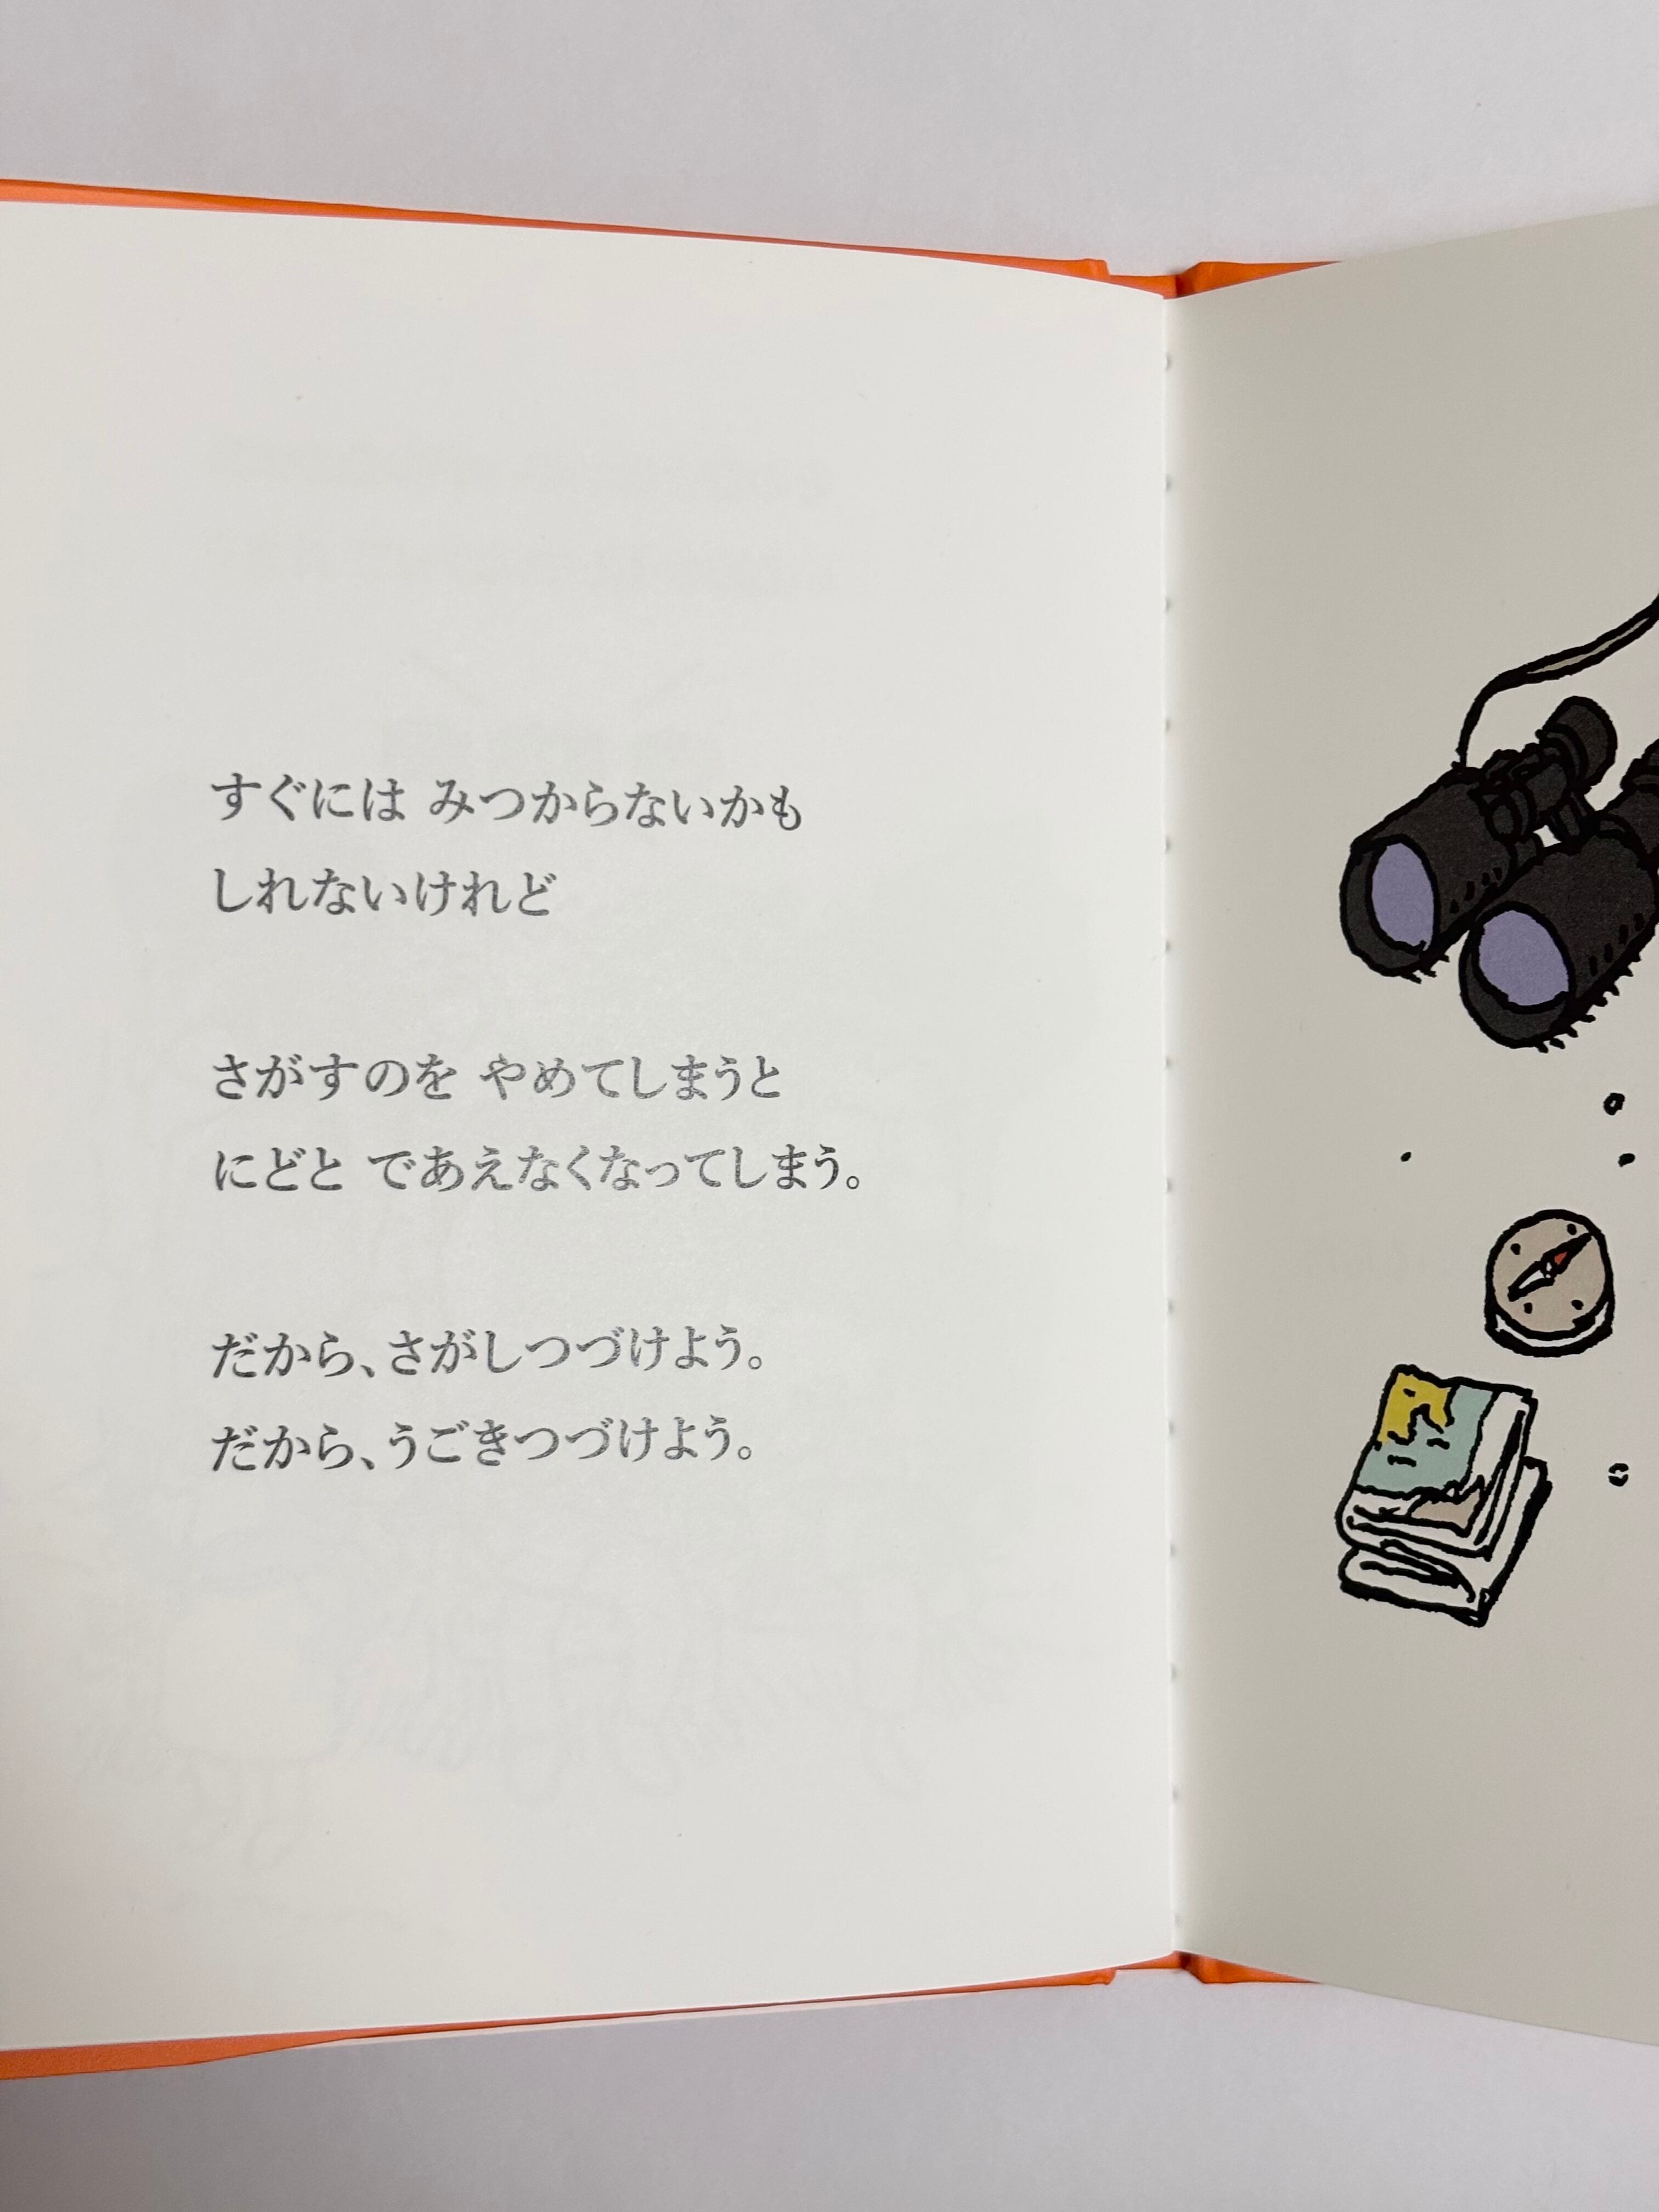 すぐには みつからないかも
しれないけれど
さがすのを やめてしまうと
にどと であえなくなってしまう。
だから、さがしつづけよう。
だから、うごきつづけよう。